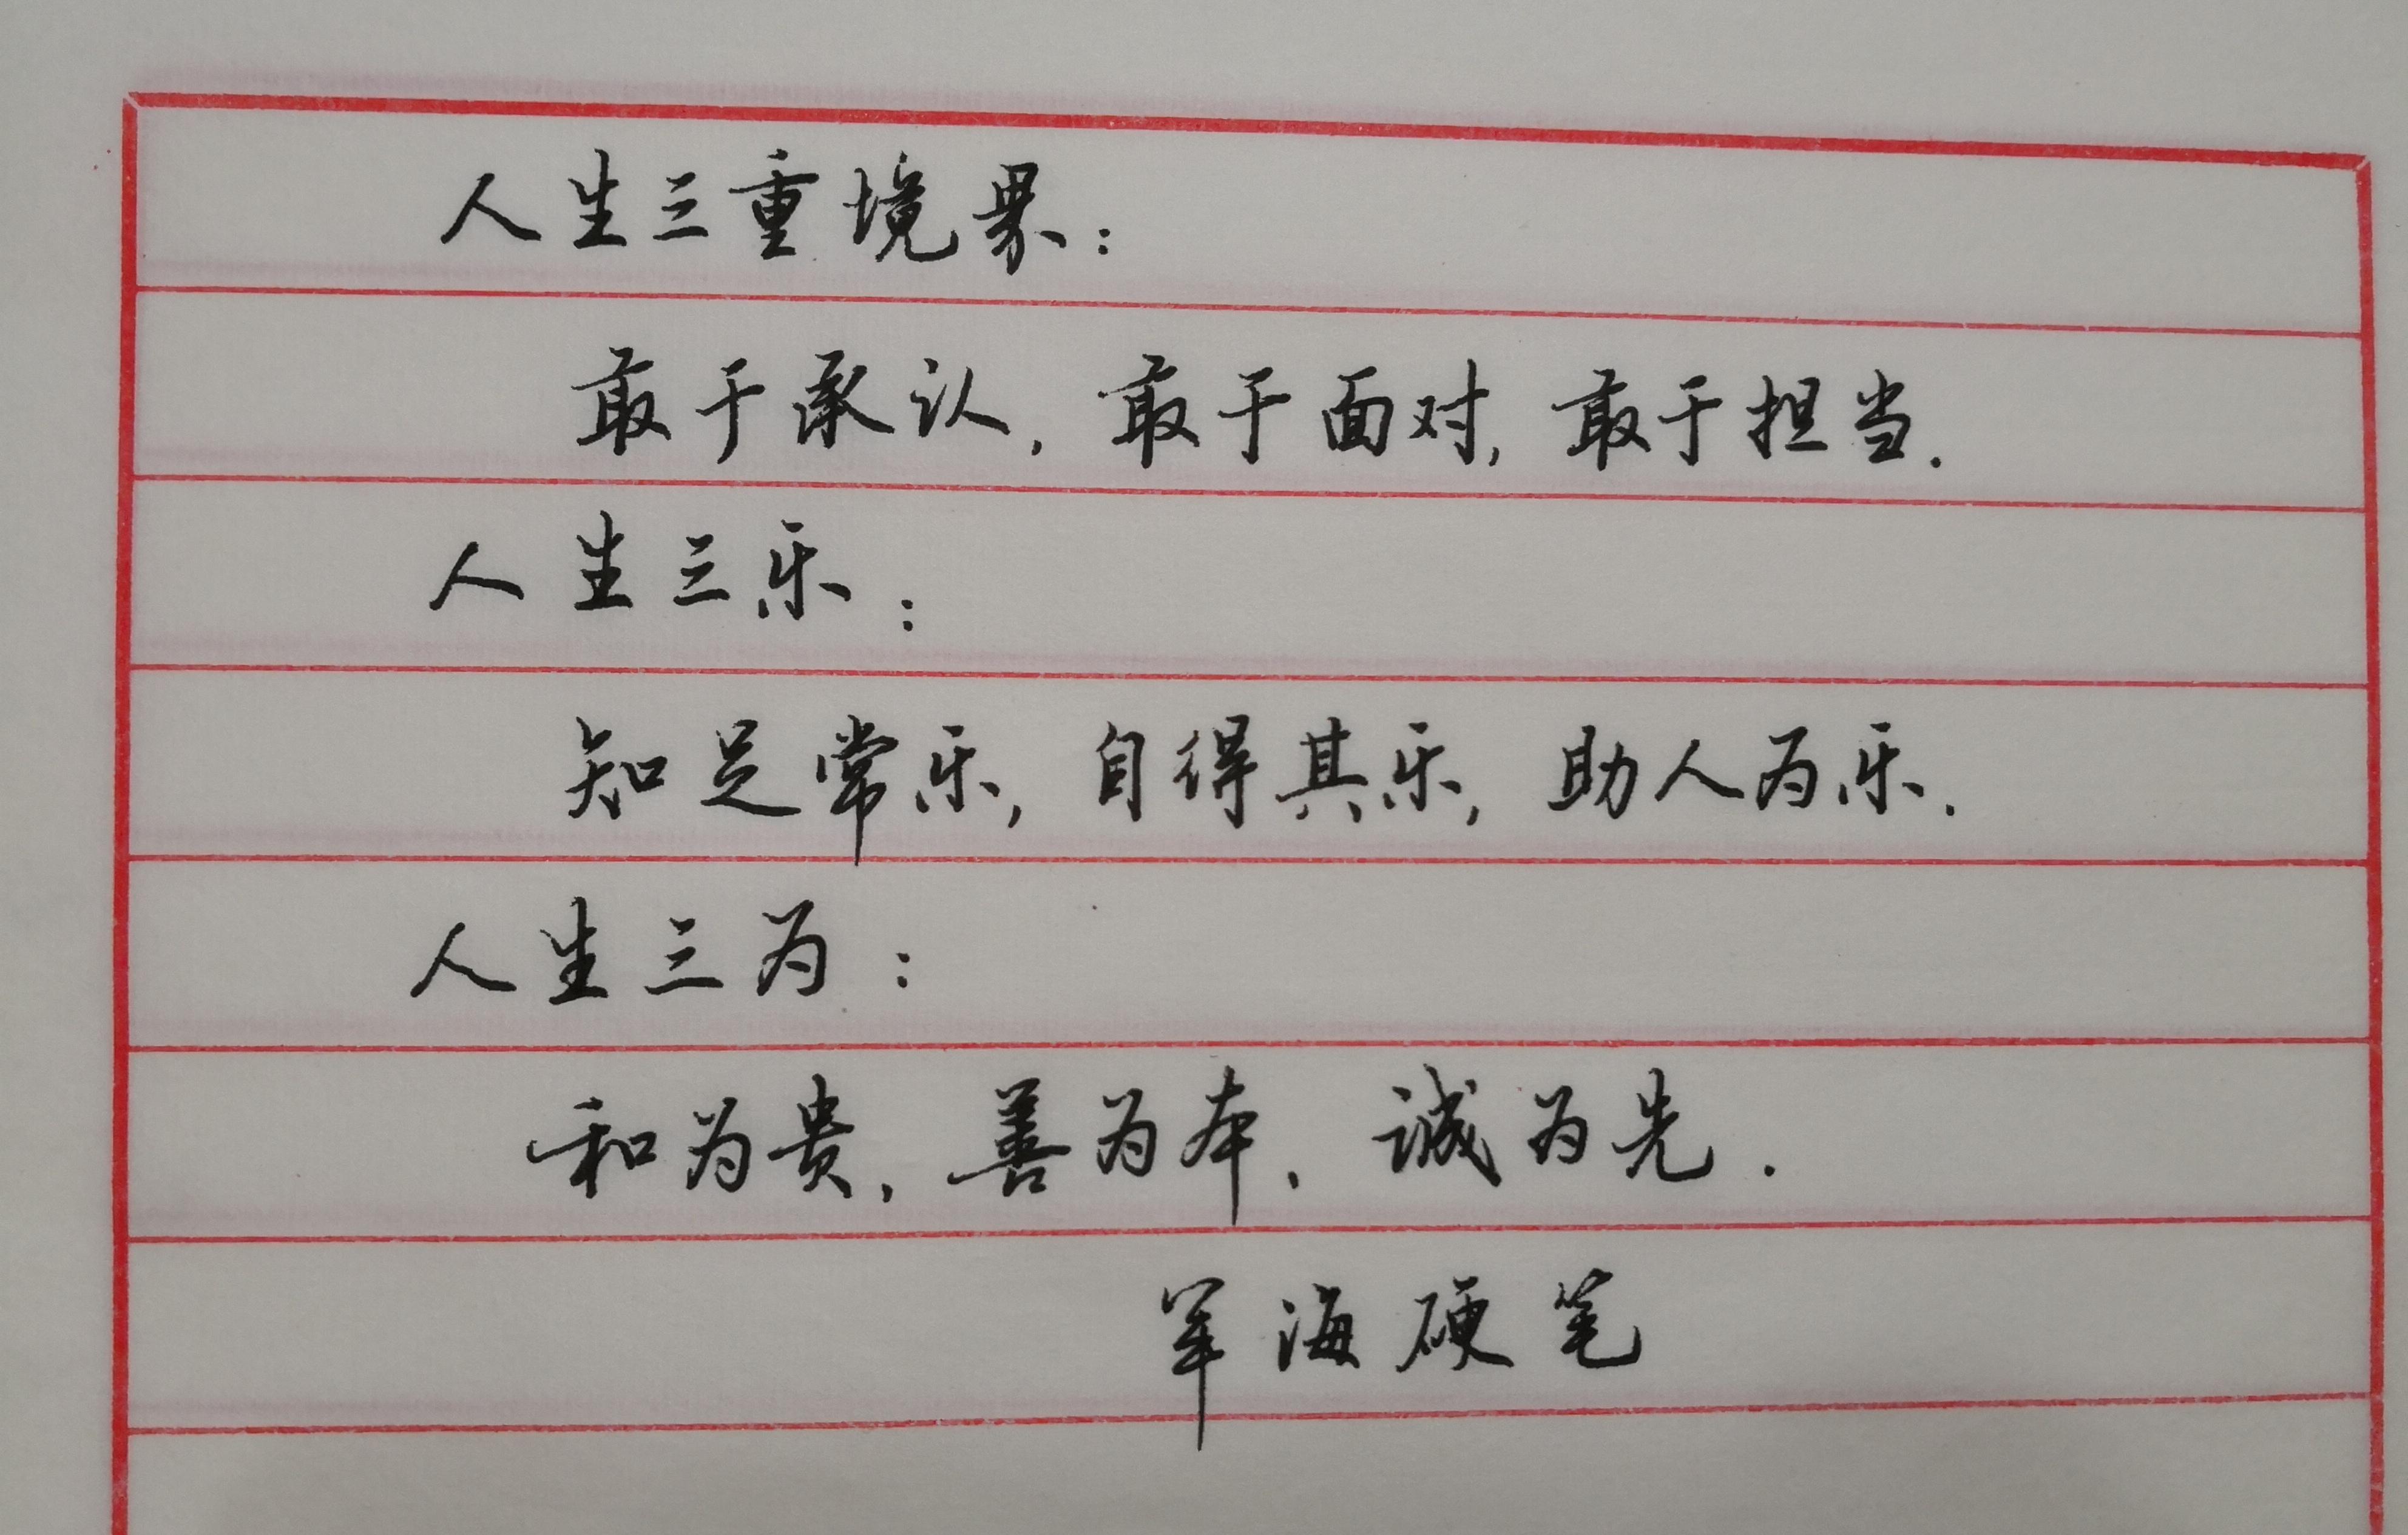 人生三重境界：
敢于承认，敢于面对，敢于担当.
人生三乐：
知足常乐，自得其乐，助人为乐.
人生三为：
和为贵，善为本，诚为先.
军海硬笔